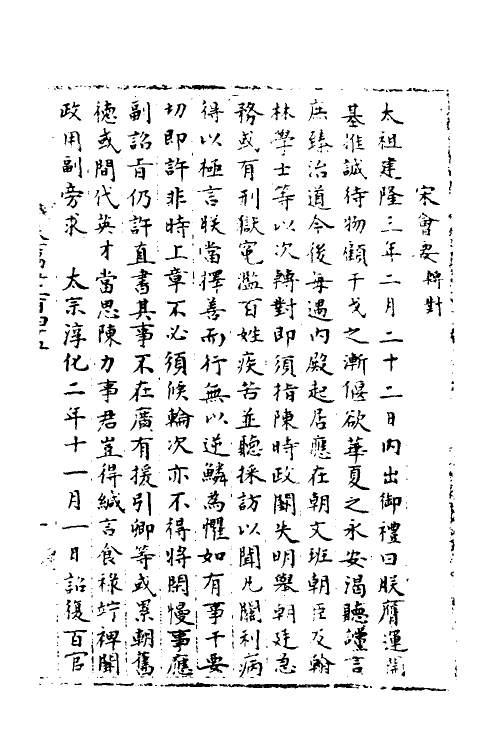 宋會要 轉對
太祖建隆三年二月二十二日內出御禮曰朕膺運開
基推誠待物顧干戈之漸偃欲華夏之永安渴聽讜言
庶臻治道今後每遇內殿起居應在朝文班朝臣及翰
林學士等以次轉對即須指陳時政闕失明舉朝廷急
務或有刑獄寃濫百姓疾苦並聽採訪以聞凡關利病
得以極言朕當擇善而行無以逆鱗為懼如有事干要
切即許非時上章不必須候輪次亦不得將閑慢事應
副詔旨仍許直書其事不在廣有援引卿等或累朝舊
德或間代英才當思陳力事君豈得緘言食祿竚裨闕
政用副旁求 太宗淳化二年十一月一日詔復百官